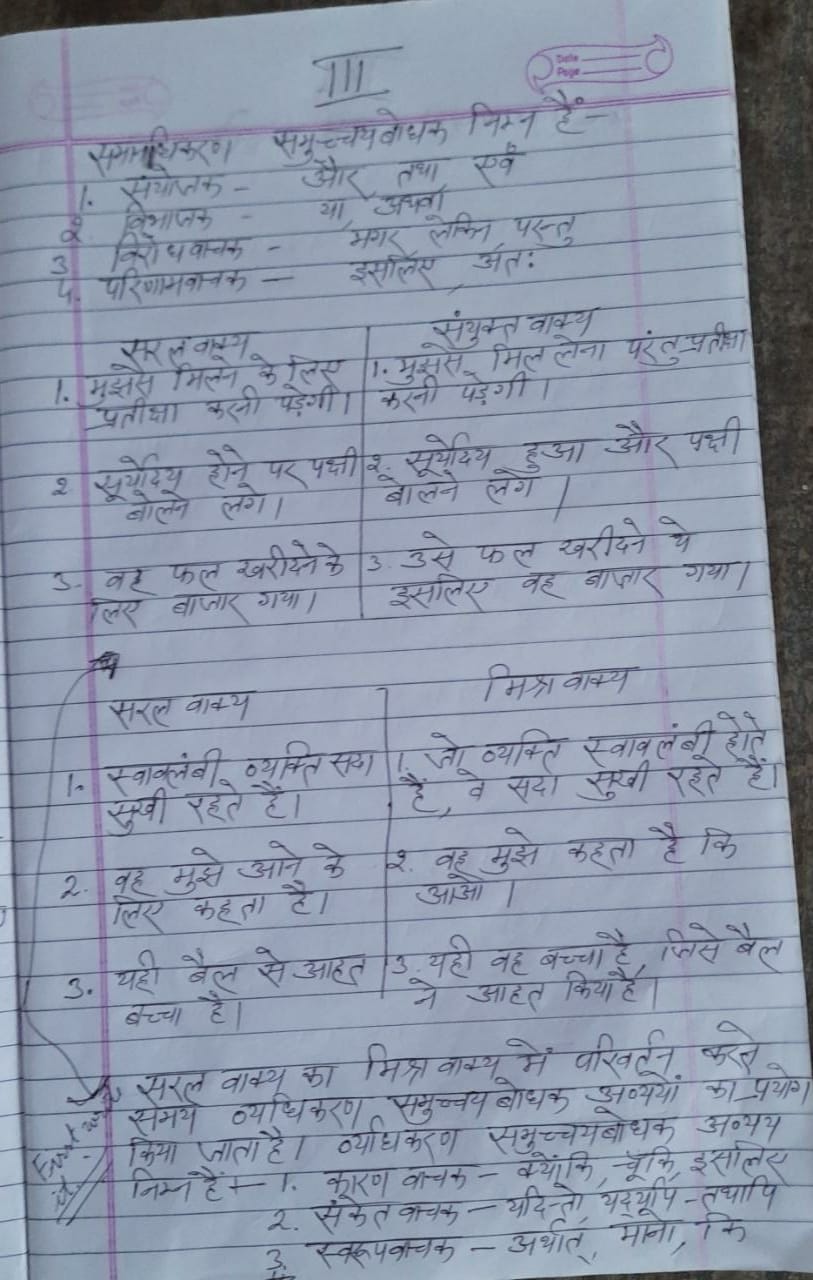 III
Date
Page
समानाधिकरण समुच्चयबोधक निम्न हैं -
1. संयोजक - और, तथा एवं
2. विभाजक - या, अथवा
3 विरोधवाचक - मगर लेकिन परन्तु
4. परिणामवाचक - इसलिए, अतः
सरल वाक्य
1. मुझसे मिलने के लिए
प्रतीक्षा करनी पड़ेगी।
संयुक्त वाक्य
1. मुझसे मिल लेना परंतु प्रतीक्षा
करनी पड़ेगी।
2 सूर्योदय होने पर पक्षी
बोलने लगे।
2. सूर्योदय हुआ और पक्षी
बोलने लगे।
3. वह फल खरीदने के
लिए बाजार गया।
3. उसे फल खरीदने थे
इसलिए वह बाज़ार गया।
सरल वाक्य
मिश्र वाक्य
1. स्वावलंबी व्यक्ति सदा
सुखी रहते हैं।
1. जो व्यक्ति स्वावलंबी होते
हैं, वे सदा सुखी रहते हैं।
2. वह मुझे आने के
लिए कहता है।
2. वह मुझे कहता है कि
आओ।
3. यही बैल से आहत
बच्चा है।
3. यही वह बच्चा है, जिसे बैल
ने आहत किया है।
सरल वाक्य का मिश्र वाक्य में परिवर्तन करते
समय व्यधिकरण समुच्चयबोधक अव्ययों का प्रयोग
किया जाता है। व्याधिकरण समुच्चयबोधक अव्यय
निम्न हैं - 1. कारण वाचक - क्योंकि, चूँकि, इसलिए
2. संकेत वाचक - यदि-तो, यद्यपि - तथापि
3. स्वरूपवाचक - अर्थात्, मानो, कि